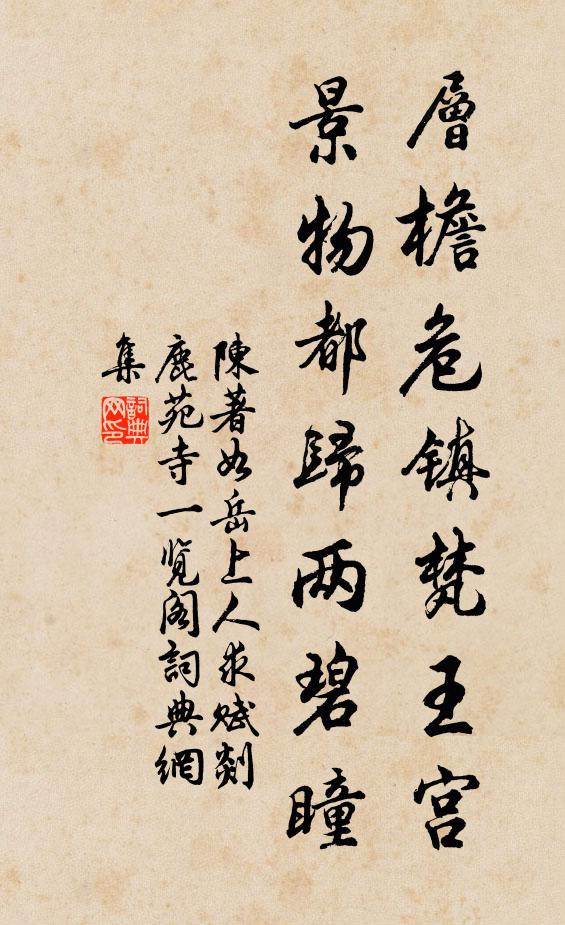 層檐危镇梵王宫
景物都歸两碧瞳
陳著如岳上人求赋剡
鹿苑寺一览阁詞典網
集
詞典網印